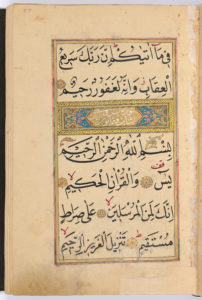 فِي مَا آتٰىكُمْ اِنَّ رَبَّكَ سَرِيعُ
الْعِقَابِ وَاِنَّهُ لَغَفُورٌ رَحِيمٌ
بِسْمِ اللّٰهِ الرَّحْمٰنِ الرَّحِيمِ
يٰسٓ وَالْقُرْاٰنِ الْحَكِيمِ
اِنَّكَ لَمِنَ الْمُرْسَلِينَ عَلٰى صِرَاطٍ
مُسْتَقِيمٍ تَنْزِيلَ الْعَزِيزِ الرَّحِيمِ